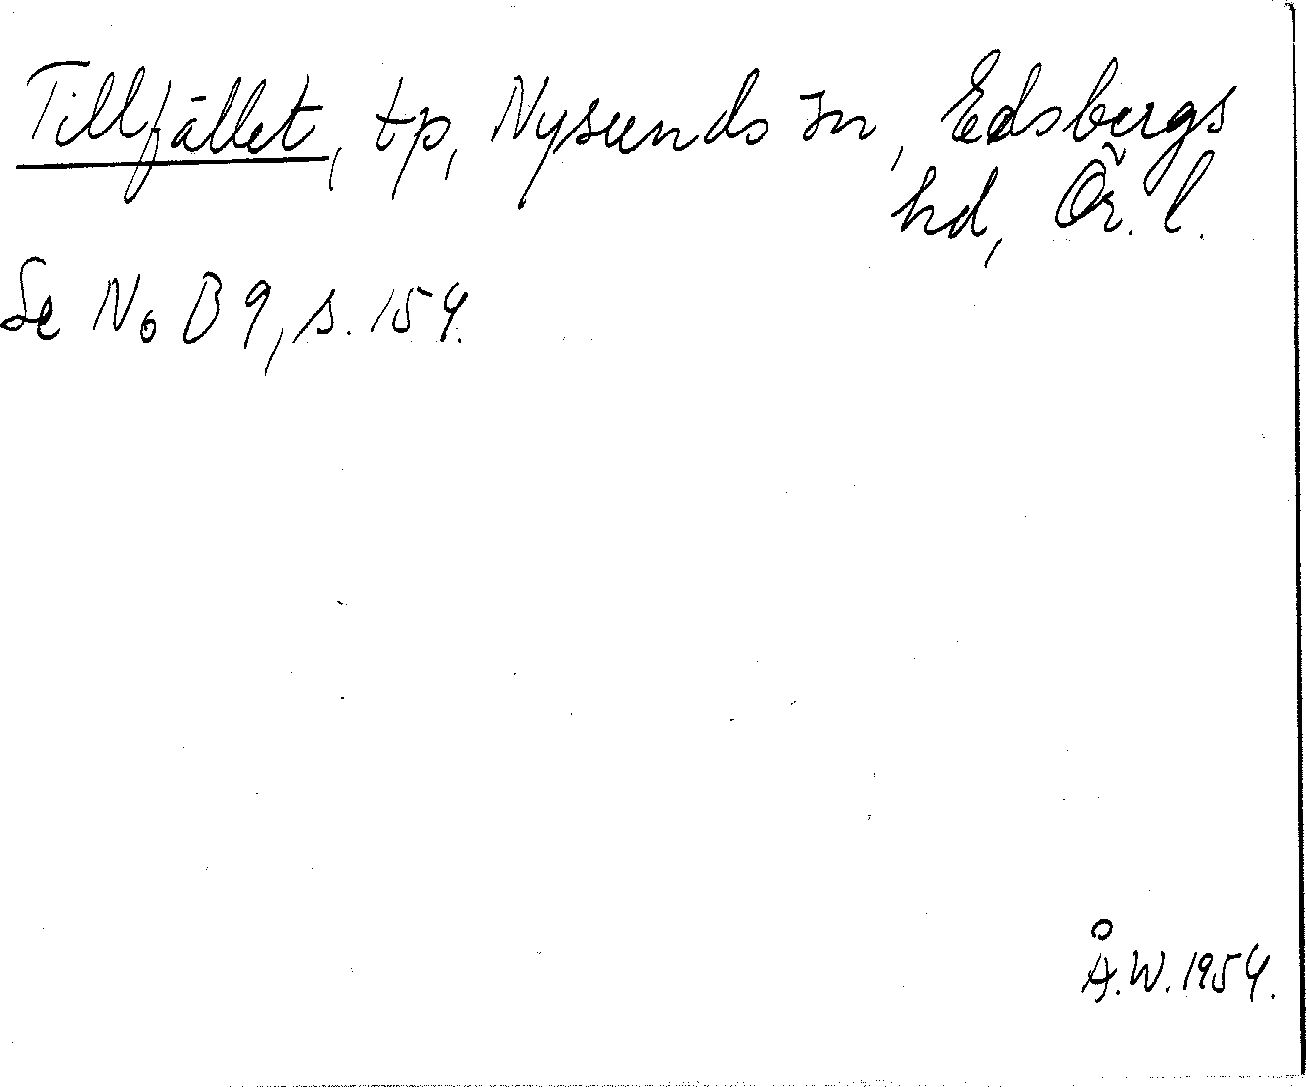 Tillfället, tp, Nysunds sn, Edsbergs
hd, Ör. l.
Se No B 9, s. 154.
Å.W. 1954.